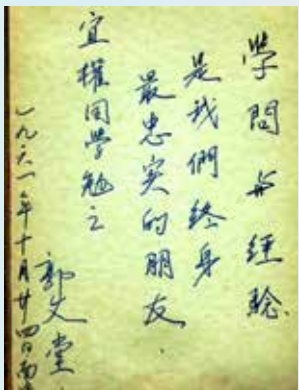 學問与經驗
是我們終身
最忠实的朋友
宜權同學勉之
郭文堂
一九六一年十月廿四日南